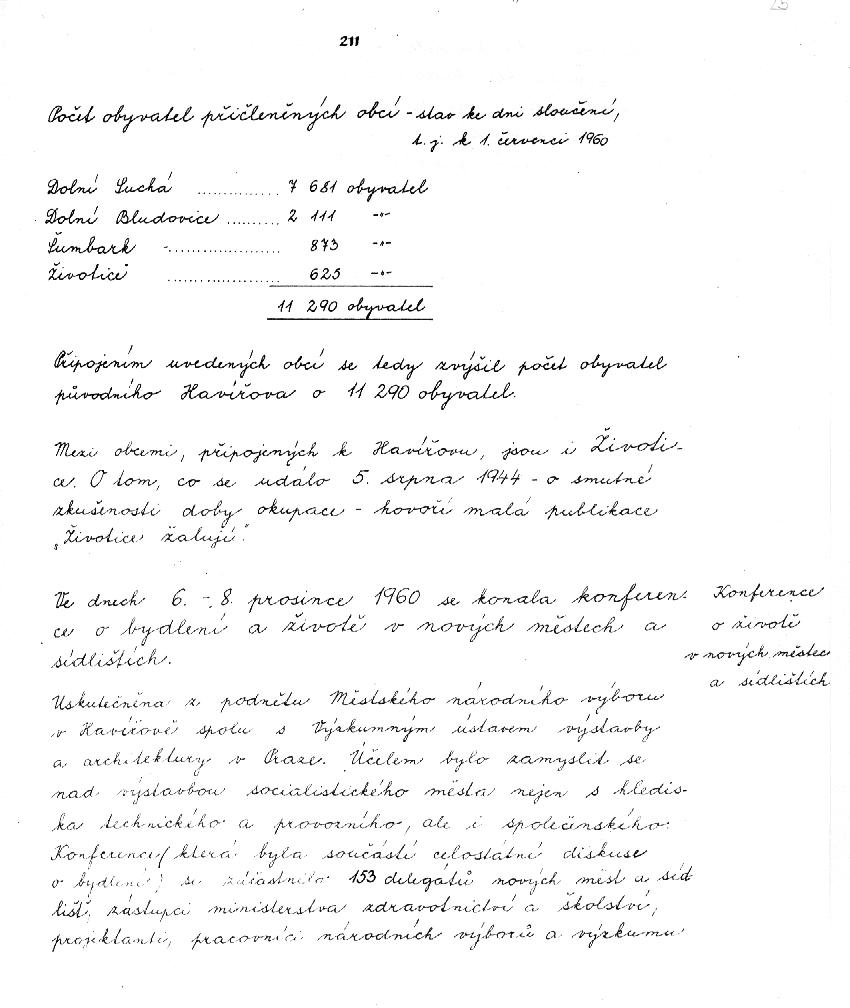 25
211
Počet obyvatel přičleněných obcí - stav ke dni sloučení,
t. j. k 1. červenci 1960
Dolní Suchá .............. 7 681 obyvatel
Dolní Bludovice ......... 2 111 -"-
Šumbark ..................... 873 -"-
Životice ..................... 625 -"-
11 290 obyvatel
Připojením uvedených obcí se tedy zvýšil počet obyvatel
původního Havířova o 11 290 obyvatel.
Mezi obcemi, připojených k Havířovu, jsou i Životi-
ce. O tom, co se událo 5. srpna 1944 - o smutné
zkušenosti doby okupace - hovoří malá publikace
„Životice žalují".
Ve dnech 6. - 8. prosince 1960 se konala konferen-
ce o bydlení a životě v nových městech a
sídlištích.
Konference
o životě
v nových městec
a sídlištích
Uskutečněna z podnětu Městského národního výboru
v Havířově spolu s Výzkumným ústavem výstavby
a architektury v Praze. Účelem bylo zamyslit se
nad výstavbou socialistického města nejen s hledis-
ka technického a provozního, ale i společenského.
Konference (která byla součástí celostátní diskuse
o bydlení) se zúčastnilo 153 delegátů nových měst a síd
lišť, zástupci ministerstva zdravotnictví a školství,
projektanti, pracovníci národních výborů a výzkumu